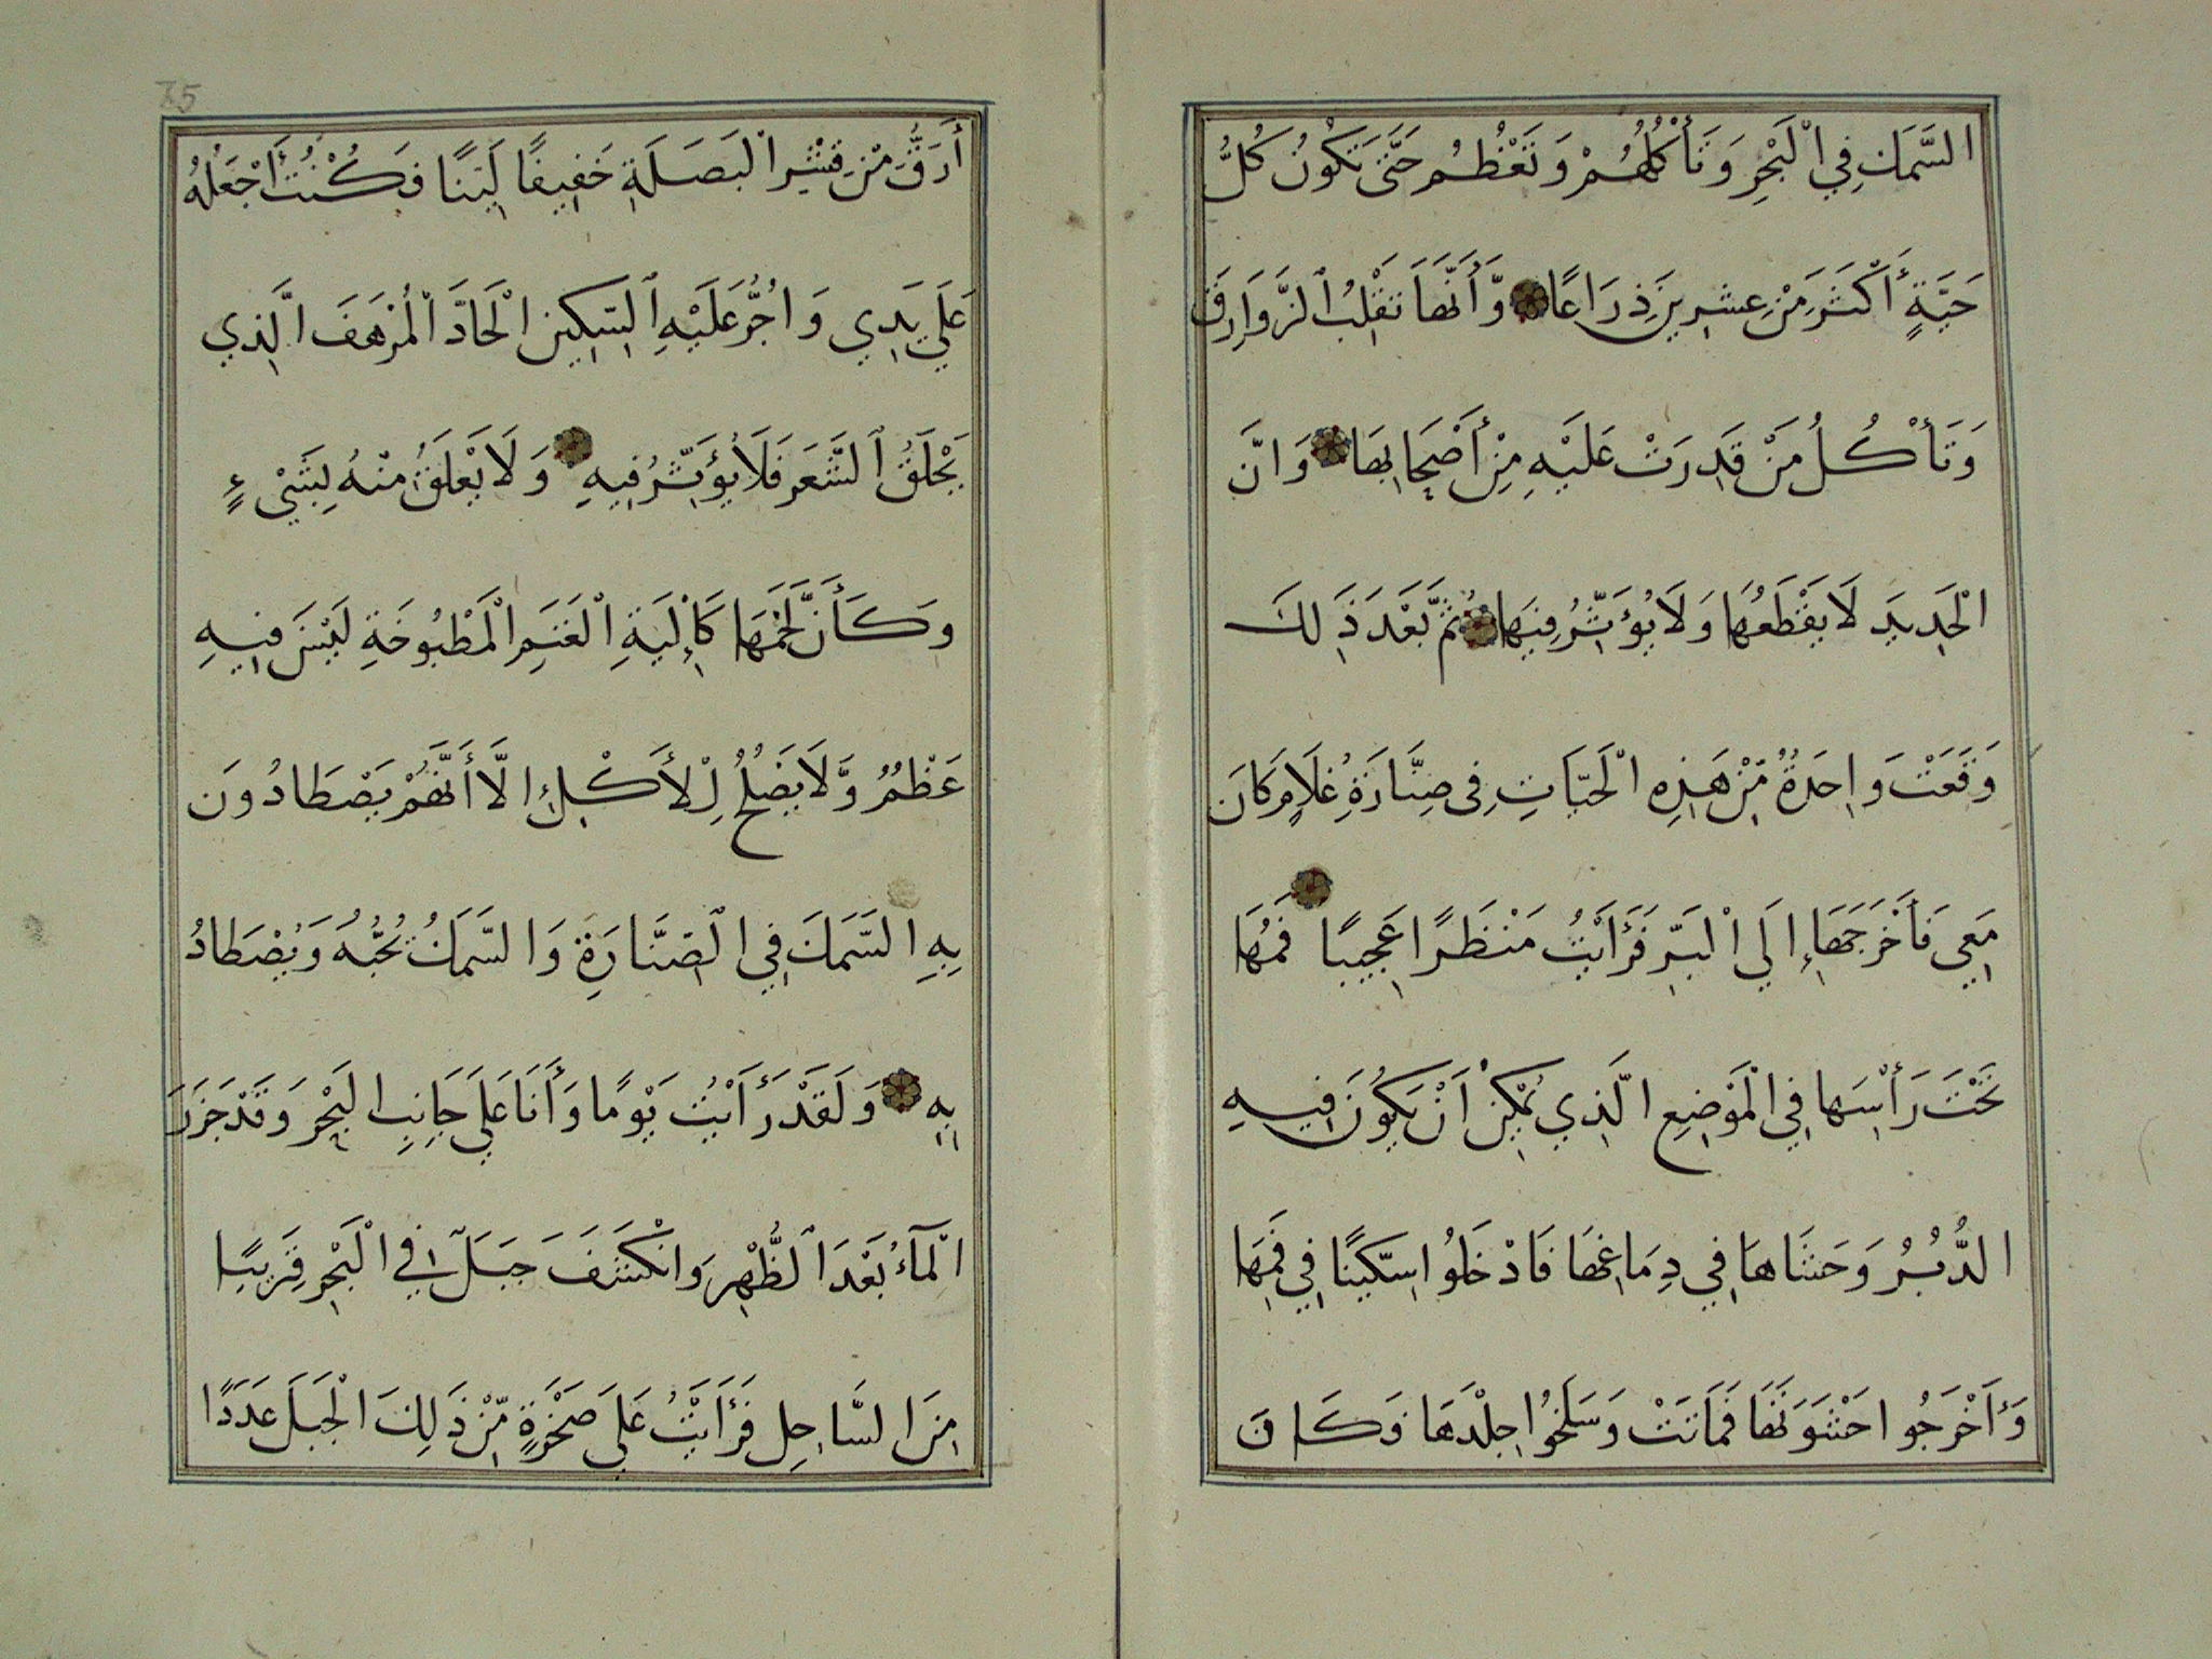 السَّمَكِ فِي الْبَحْرِ وَتَأْكُلُهُمْ وَتَعْظُمُ حَتَّى تَكُونُ كُلُّ
حَيَّةٍ أَكْثَرَ مِنْ عِشرِينَ ذِرَاعًا وَّأَنَّهَا تَقْلِبُ الزَّوَارِقَ
وَتَأْكُلُ مَنْ قَدِرَتْ عَلَيْهِ مِنْ أَصْحَابِهَا وَانَّ
الْحَدِيدَ لَا يَقْطَعُهَا وَلَا يُؤَثِّرُ فِيهَا ثُمَّ بَعْدَ ذَلِكَ
وَقَعَتْ وَاحِدَةٌ مِّنْ هَذِهِ الْحَيَّاتِ فِى صِنَّارَةِ غُلَامٍ كَانَ
مَعِي فَأَخْرَجَهَا إِلَي الْبَرِّ فَرَأَيْتُ مَنْظَرًا عَجِيبًا فَمُهَا
تَحْتَ رَأْسِهَا فِي الْمَوْضِعِ الَّذِي يُمْكِنُ أَنْ يَكُونَ فِيهِ
الدُّبُرُ وَحَشَاهَا فِي دِمَاغِهَا فَادْخَلُوا سِكِّينًا فِي فَمِهَا
وَأَخْرَجُوا حَشْوَتَهَا فَمَاتَتْ وَسَلَخُوا جِلْدَهَا وَكَانَ
75
أَرَقَّ مِنْ قِشْرِ الْبَصَلَةِ خَفِيفًا لَيِّنًا فَكُنْتُ أَجْعَلُهُ
عَلَي يَدِي وَاجُرُّ عَلَيْهِ السِّكِينَ الْحَادَّ الْمُرْهَفَ الَّذِي
يَحْلَقُ الشَّعَرَ فَلَا يُؤَثِّرُ فِيهِ وَلَا يَعْلَقُ مِنْهُ بِشَيْءٍ
وَكَأَنَّ لَحْمَهَا كَاِلْيَةِ الْغَنَمِ الْمَطْبُوخَةِ لَيْسَ فِيهِ
عَظْمٌ وَّلَا يَصْلُحُ لِلْأَكْلِ إِلَّا أَنَّهُمْ يَصْطَادُونَ
بِهِ السَّمَكَ فِي الصِّنَّارَةِ وَالسَّمَكُ تُحِبُّهُ وَيُصْطَادُ
بِهِ وَلَقَدْ رَأَيْتُ يَوْمًا وَأَنَا عَلَي جَانِبِ الْبَحْرِ وَقَدْ جَزَرَ
الْمَآءُ بَعْدَ الظُّهْرِ وَانْكَشَفَ جَبَلٌ فِي الْبَحْرِ قَرِيبًا
مِنَ السَّاحِلِ فَرَأَيْتُ عَلَي صَخْرَةٍ مِّنْ ذَلِكَ الْجَبَلِ عَدَدًا